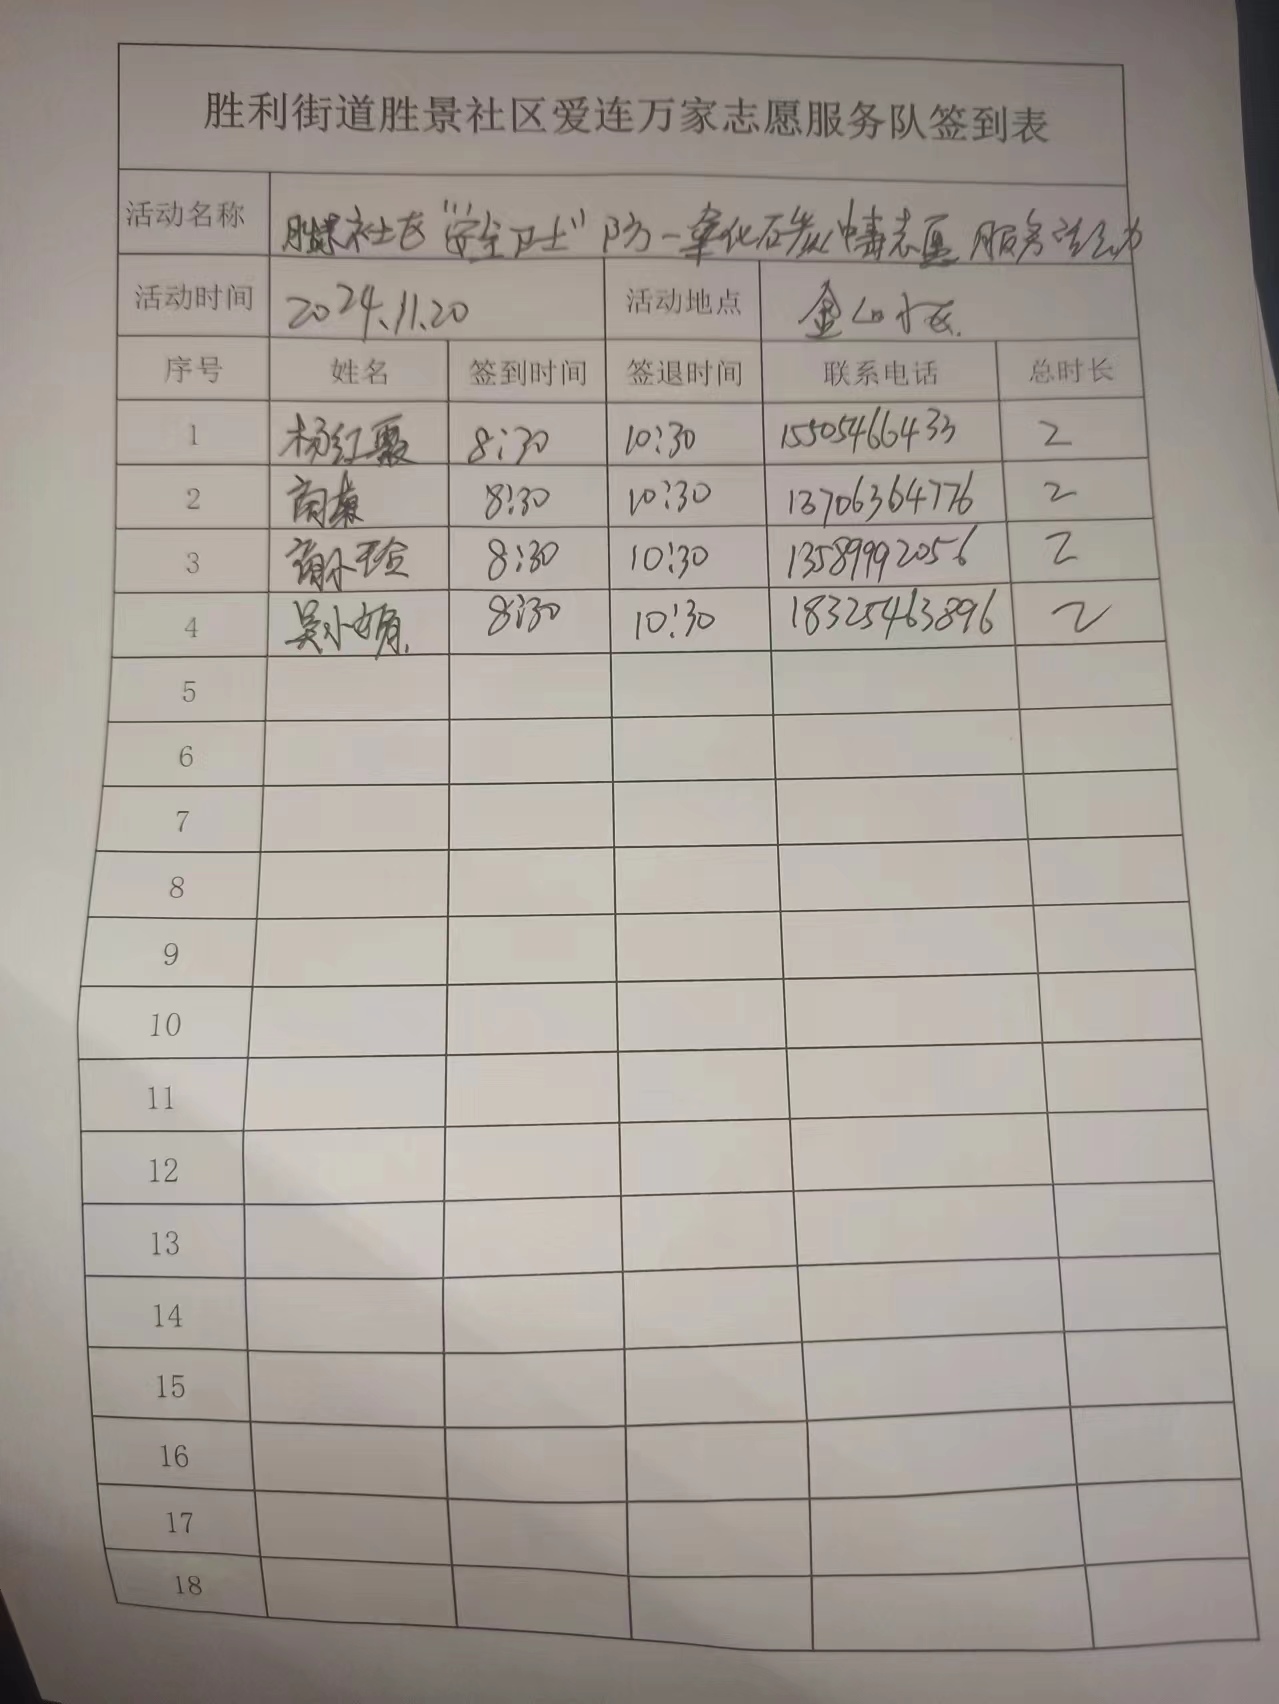 胜利街道胜景社区爱连万家志愿服务队签到表
活动名称 胜景社区“安全卫士”防一氧化碳中毒志愿服务活动
活动时间 2024.11.20 活动地点 小区.
序号 姓名 签到时间 签退时间 联系电话 总时长
1 杨红霞 8:30 10:30 15505466433 2
2 8:30 10:30 13706364776 2
3 8:30 10:30 13589992056 2
4 吴小娟. 8:30 10:30 18325463896 2
5
6
7
8
9
10
11
12
13
14
15
16
17
18